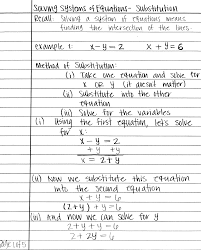 Solving Systems of Equations - Substitution
Recall: Solving a system of equations means
finding the intersection of the lines.
example 1: x - y = 2 x + y = 6
Method of Substitution:
(i) Take one equation and solve for
x OR y (it doesn't matter)
(ii) Substitute into the other
equation
(iii) Solve for the variables
(i) Using the first equation, let's solve
for x:
x - y = 2
+ y + y
x = 2 + y
(ii) Now we substitute this equation
into the second equation
x + y = 6
(2 + y) + y = 6
(iii) and now we can solve for y
2 + y + y = 6
2 + 2y = 6